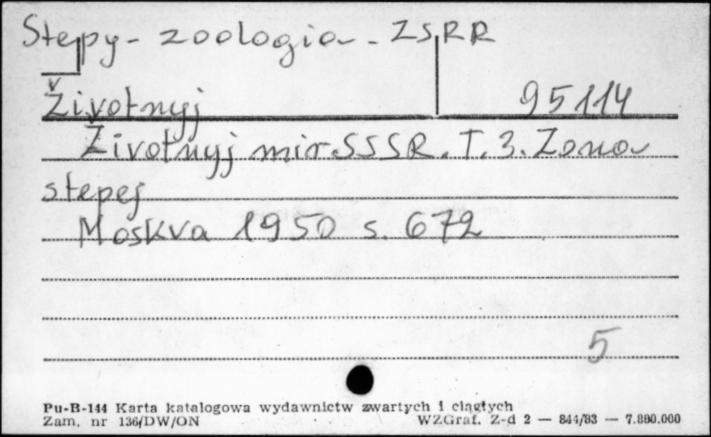 Stepy - zoologia - ZSRR
Životnyj 95114
Životnyj mir SSSR. T. 3. Zona
stepej
Moskva 1950 s. 672
5
Pu-B-144 Karta katalogowa wydawnictw zwartych i ciągłych
Zam. nr 136/DW/ON WZGraf. Z-d 2 — 844/83 — 7.880.000